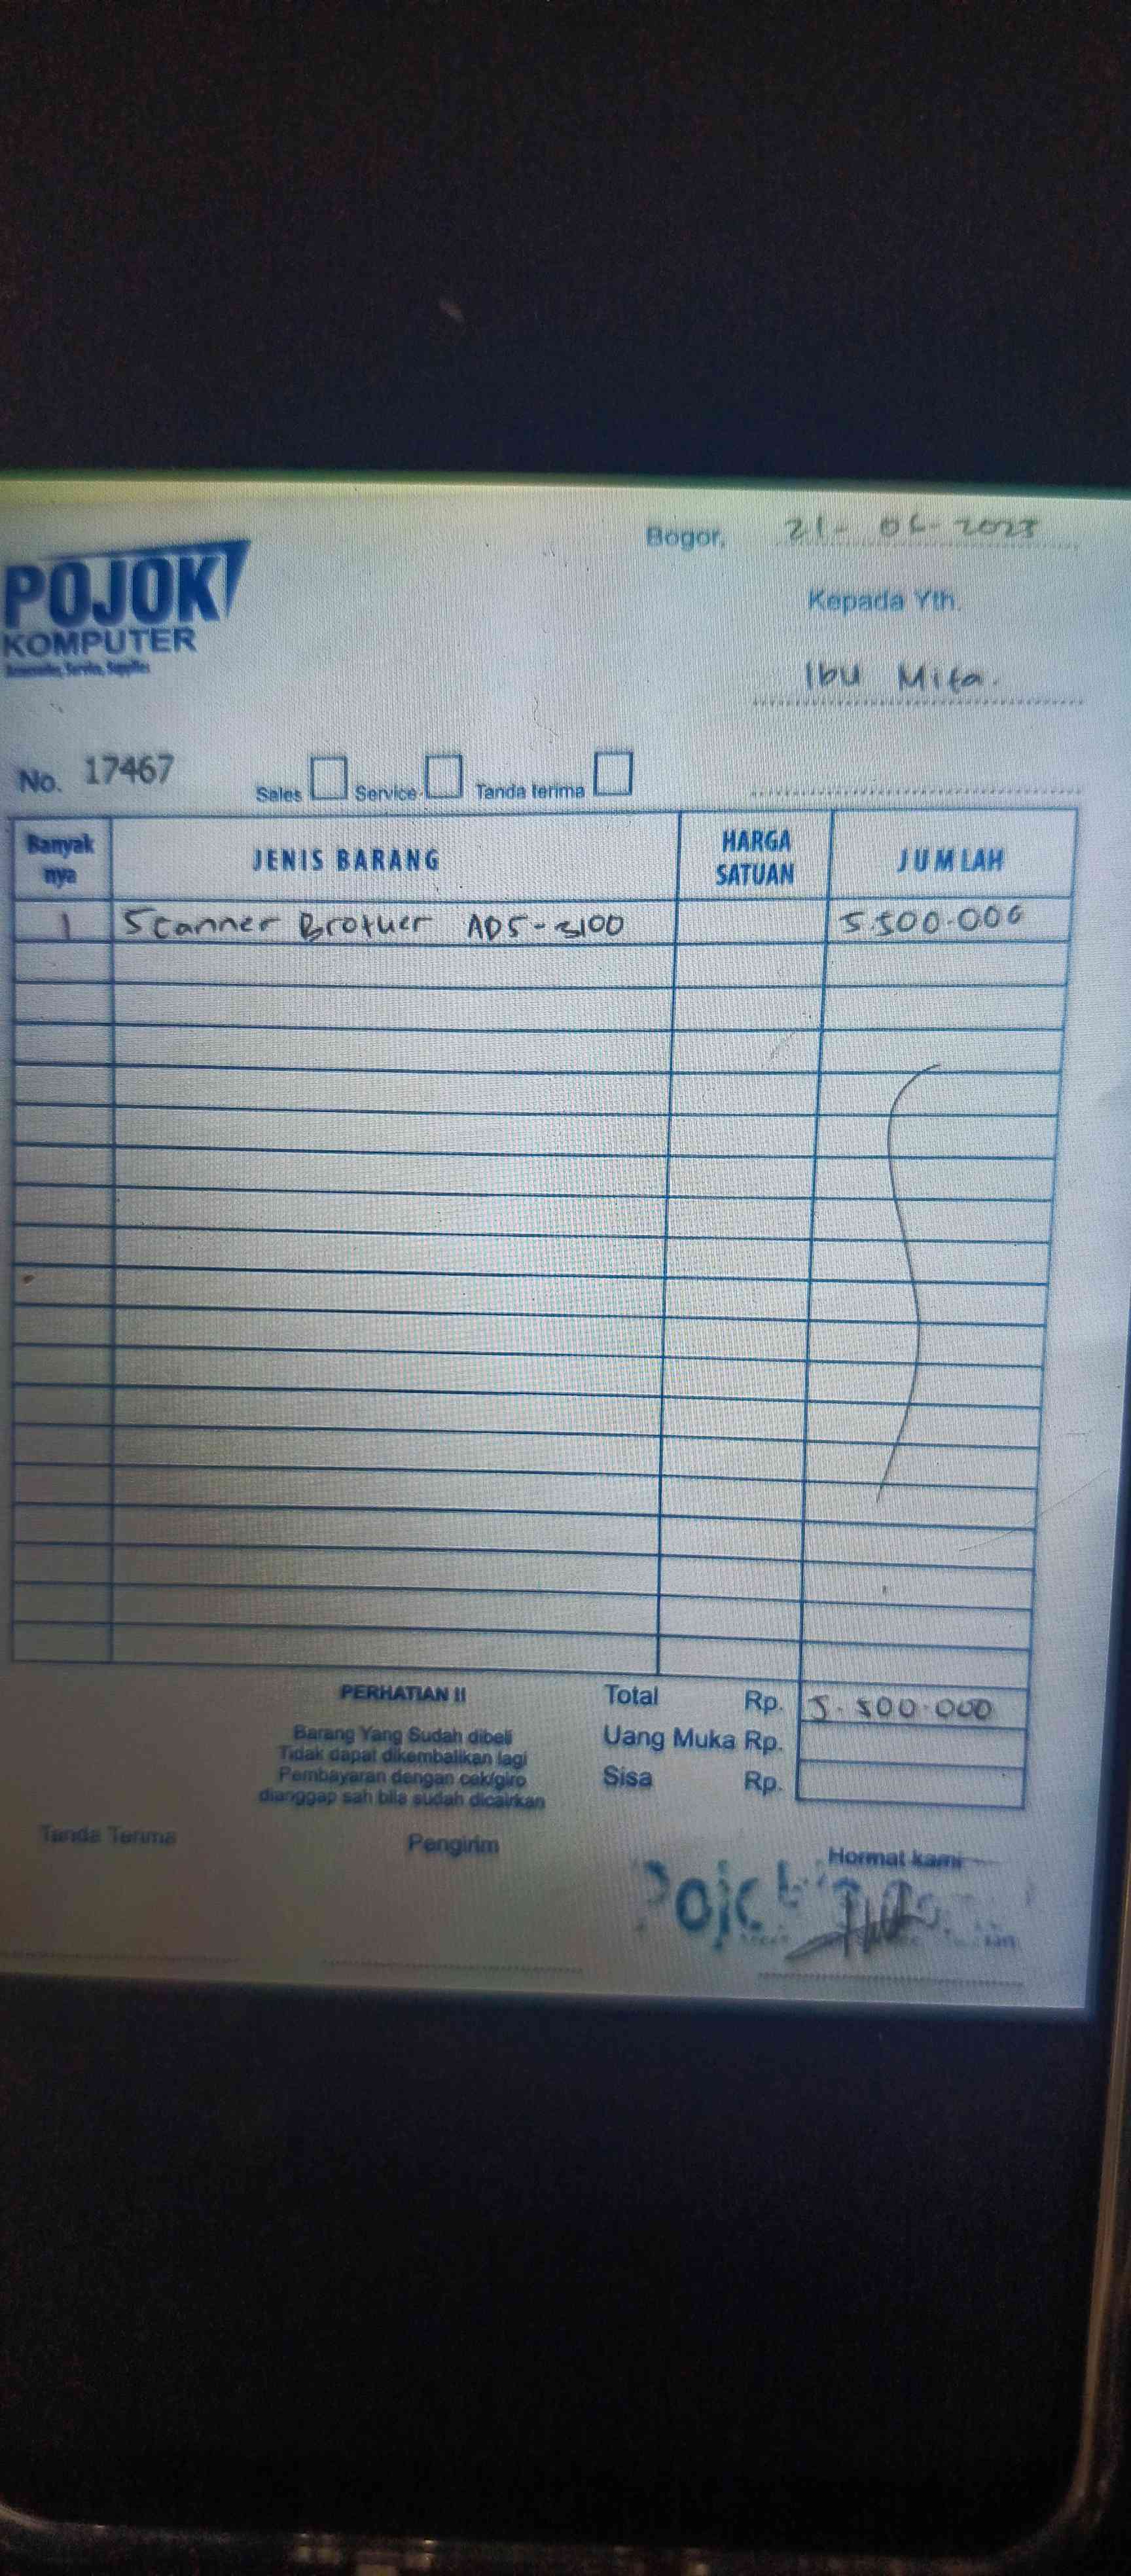 Bogor, 21-06-2023
POJOK
KOMPUTER
Kepada Yth.
Ibu Mita.
No. 17467
Sales Service Tanda terima
Banyak nya JENIS BARANG HARGA SATUAN JUMLAH
1 Scanner Brother ADS-3100 5.500.000
PERHATIAN !!
Barang Yang Sudah dibeli
Tidak dapat dikembalikan lagi
Pembayaran dengan cek/giro
dianggap sah bila sudah dicairkan
Total Rp. 5.500.000
Uang Muka Rp.
Sisa Rp.
Tanda Terima Pengirim Hormat kami